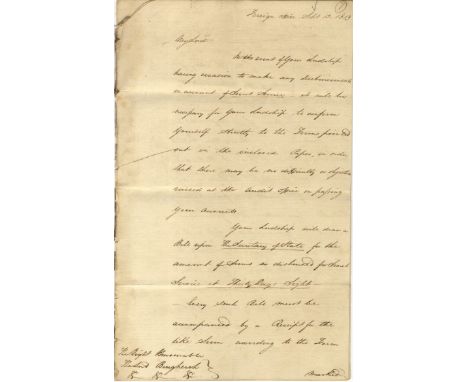 Foreign Office Sept 13. 1813
My Lord
In the event of Your Lordship
having occasion to make any disbursements
on account of Secret Service it will be
necessary for Your Lordship to conform
Yourself strictly to the Forms pointed
out in the inclosed Paper, in order
that there may be no difficulty or objection
raised at the Audit Office in passing
Your Accounts
Your Lordship will draw a
Bill upon The Secretary of State for the
amount of Sums so disbursed for Secret
Service at Thirty Days Sight
Every such Bill must be
accompanied by a Receipt for the
like Sum according to the Form
The Right Honourable
The Lord Burghersh
&c &c &c
Marked